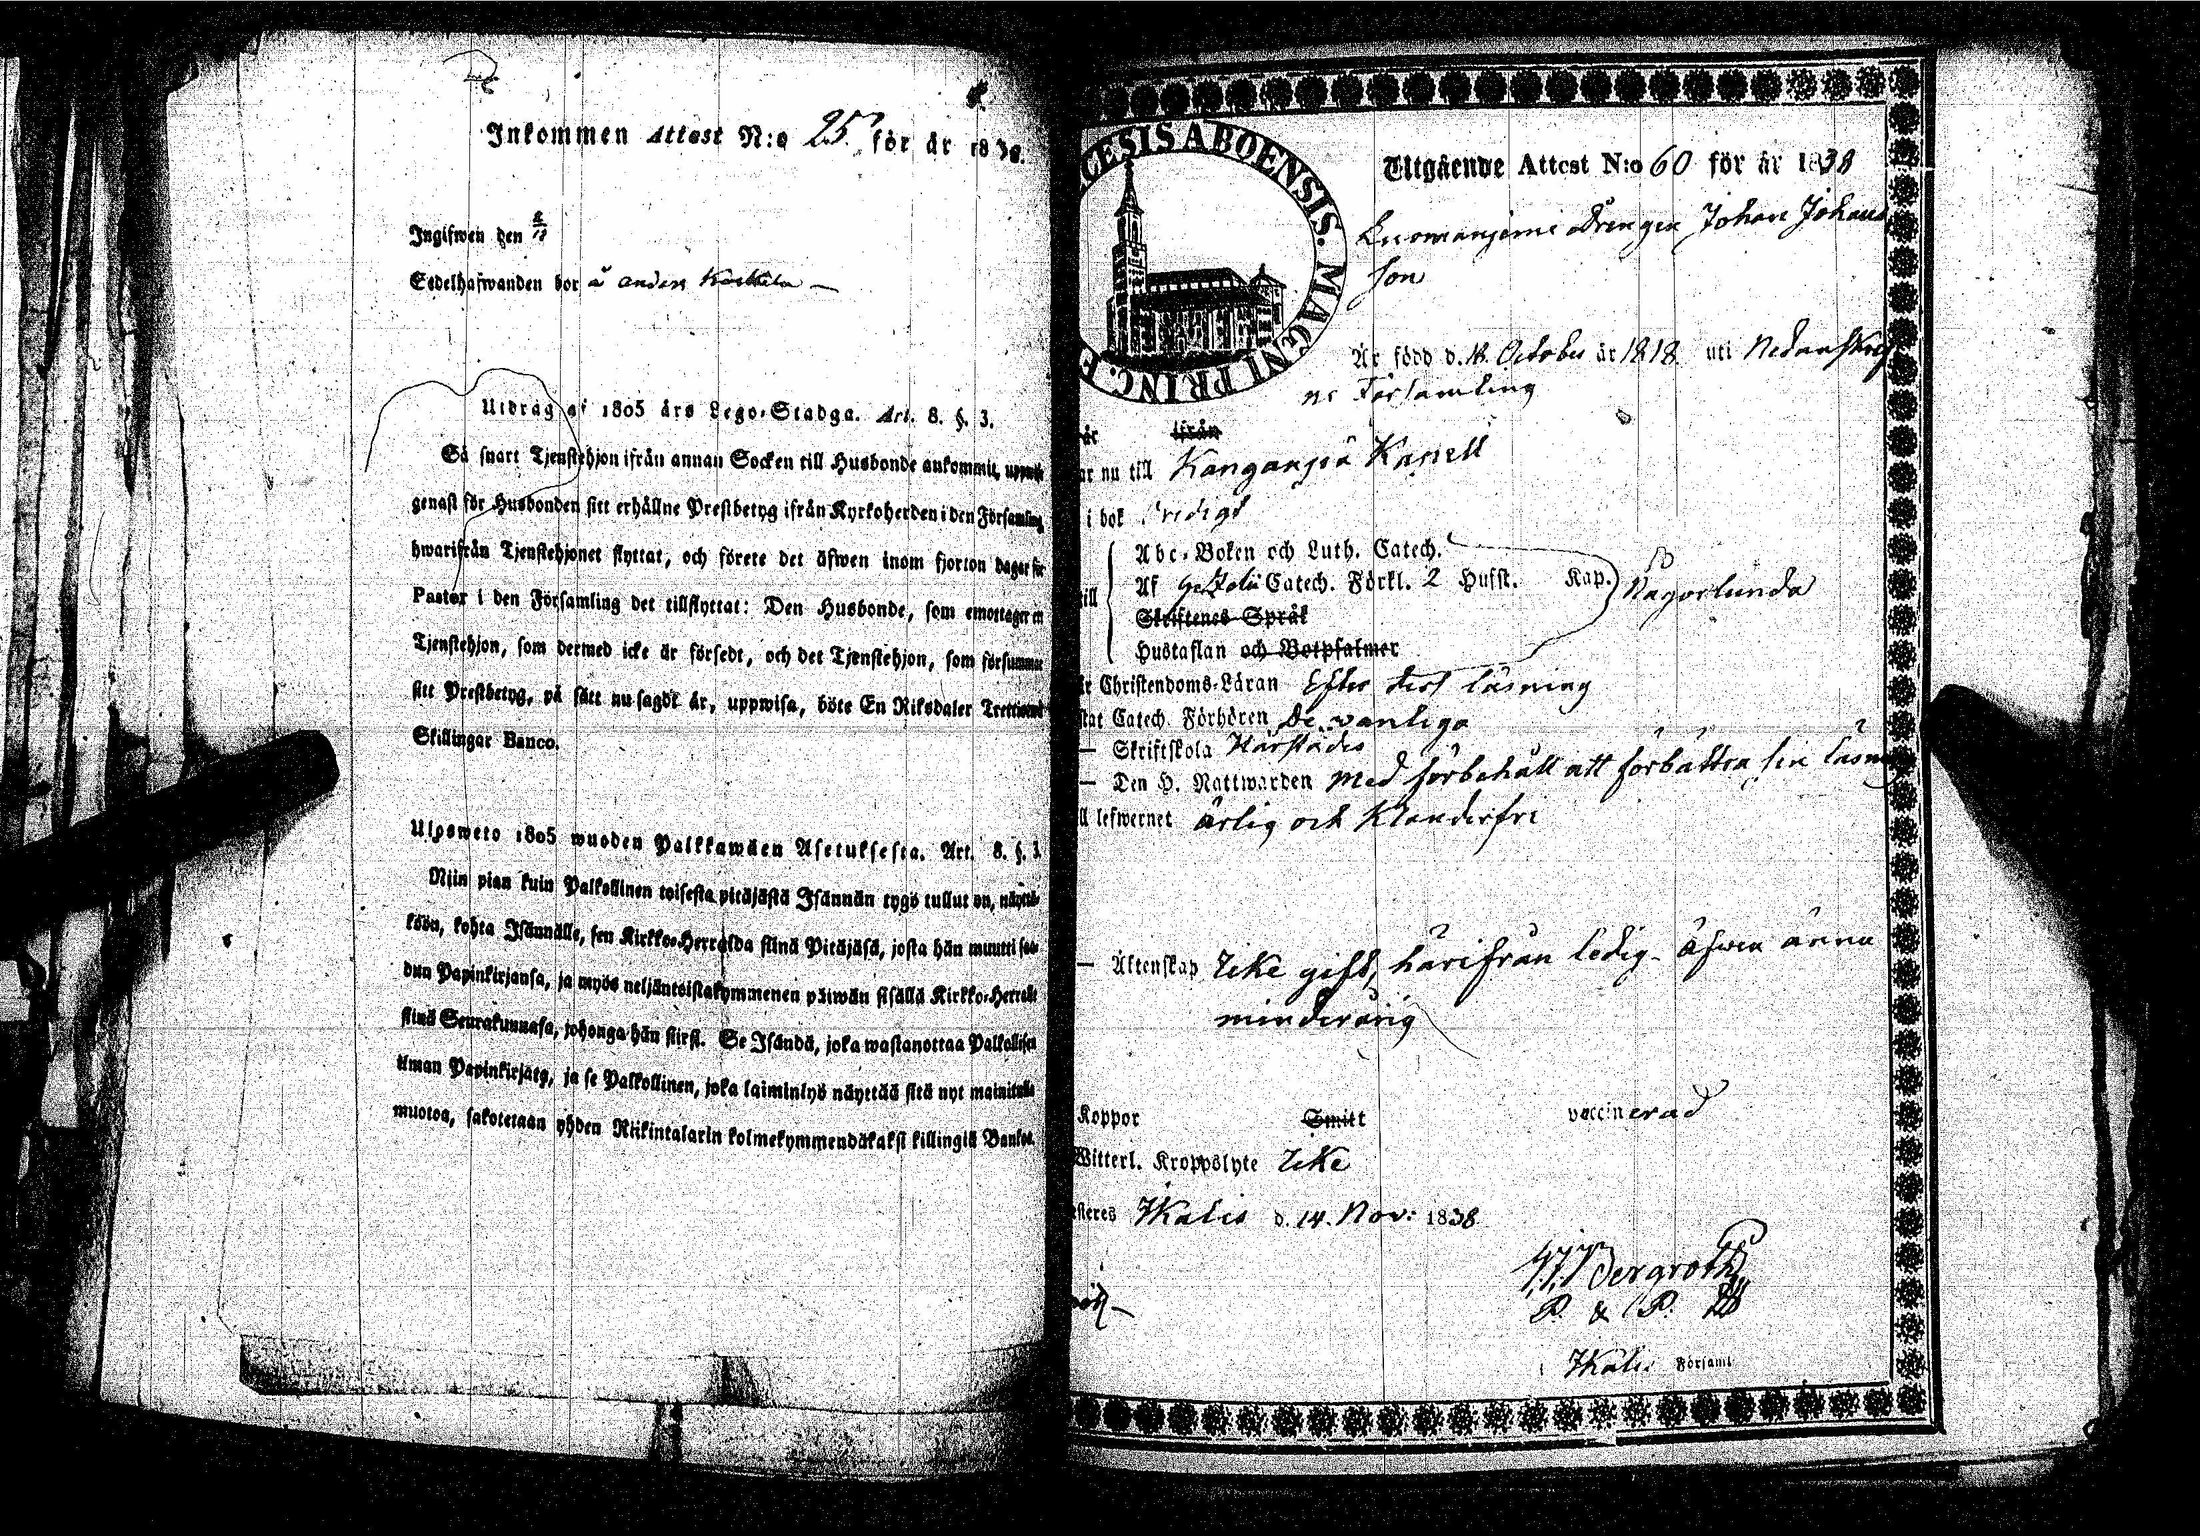 Inkommen Attest N:o 25. för år 18
Ingifwen den
Sedelhafwanden bor å anders
Utdrag af 1805 års Lego-Stadga. Art. 8. §. 3.
Så snart Tjenstehjon ifrån annan Socken till Husbonde ankommit,
genast för Husbonden sitt erhållne Prestbetyg ifrån Kyrkoherden i den Församling
hwarifrån Tjenstehjonet flyttat, och förete det äfwen inom fjorton dagar för
Pastor i den Församling det tillflyttat: Den Husbonde, som emottager en
Tjenstehjon, som dermed icke är försedt, och det Tjenstehjon, som försummar
sitt Prestbetyg, på sätt nu sagdt är, uppwisa, böte En Riksdaler Trettiotwå
Skillingar Banco.
Ulosweto 1805 wuoden Palkkawäen Asetuksesta. Art. 8. §. 3.
Niin pian kuin Palkollinen toisesta pitäjästä Isännän tygö tullut on, näyttä-
köön, kohta Isännälle, sen Kirkko-Herralda siinä Pitäjäsä, josta hän muutti saa-
dun Papinkirjansa, ja myös neljäntoistakymmenen päiwän sisällä Kirkko-Herralle
siinä Seurakunnasa, johonga hän siirsi. Se Isändä, joka wastanottaa Palkollisen
ilman Papinkirjata, ja se Palkollinen, joka laiminlyö näyttää sitä nyt mainitulla
muotoa, sakotetaan yhden Riikintalarin kolmekymmendäkaksi killingiä Bankos.
CESIS ABOENSIS. MAGNI PRINC. F
Utgående Attest N:o 60 för år 1838
Drengen Johan Johans
son
Är född d. 18. October år 1818 uti Nedanskref
ne Församling
ifrån
ar nu till Kangasjä Kapell
i bok
Abc-Boken och Luth. Catech.
till Af Catech. Förkl. 2 Hufst. Kap. Någorlunda
Skriftenes Språk
Hustaflan och Botpsalmer
är Christendoms-Läran Efter dess läsning
stat Catech. Förhören De vanliga
— Skriftskola Härstädes
— Den H. Nattwarden med förbehåll att förbättra sin läsning
ll lefwernet ärlig och Klanderfri
— Äktenskap Icke gift, härifrån ledig - äfwen ännu
minderårig
Koppor Smitt vaccinerad
Witterl. Kroppslyte Icke
esteres Ikalis d. 14. Nov: 1838
Bergroth
P. & P.
i Ikalis Församl